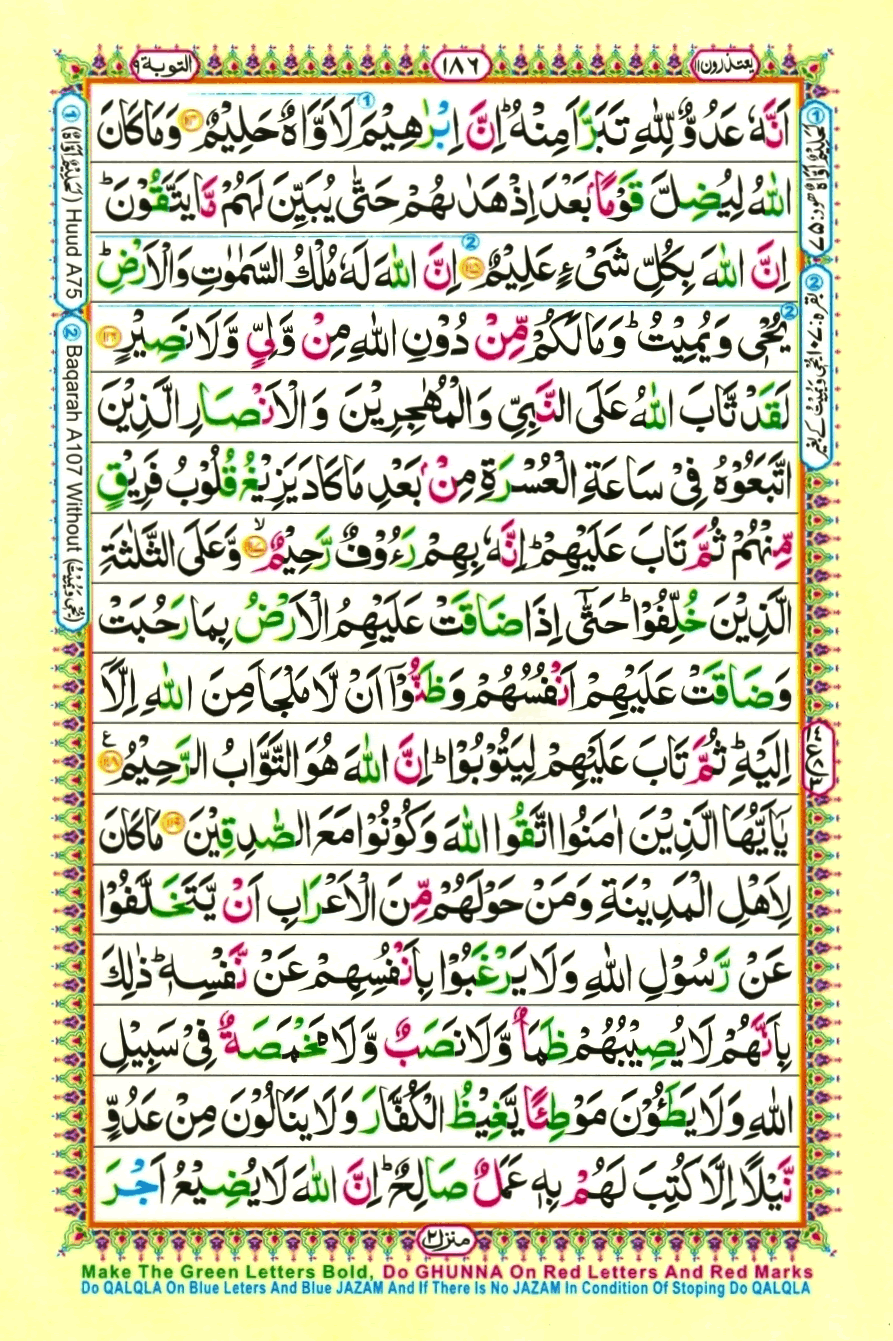 يعتذرون ١١
١٨٦
التوبة ٩
اَنَّهٗ عَدُوٌّ لِّلّٰهِ تَبَرَّاَ مِنْهُ ؕ اِنَّ اِبْرٰهِيْمَ لَاَوَّاهٌ حَلِيْمٌ ﴿۱۱۴﴾ وَمَا كَانَ
اللّٰهُ لِيُضِلَّ قَوْمًۢا بَعْدَ اِذْ هَدٰىهُمْ حَتّٰى يُبَيِّنَ لَهُمْ مَّا يَتَّقُوْنَ ؕ
اِنَّ اللّٰهَ بِكُلِّ شَىْءٍ عَلِيْمٌ ﴿۱۱۵﴾ اِنَّ اللّٰهَ لَهٗ مُلْكُ السَّمٰوٰتِ وَالْاَرْضِ ؕ
يُحْىٖ وَيُمِيْتُ ؕ وَمَا لَكُمْ مِّنْ دُوْنِ اللّٰهِ مِنْ وَّلِىٍّ وَّلَا نَصِيْرٍ ﴿۱۱۶﴾
لَقَدْ تَّابَ اللّٰهُ عَلَى النَّبِىِّ وَالْمُهٰجِرِيْنَ وَالْاَنْصَارِ الَّذِيْنَ
اتَّبَعُوْهُ فِىْ سَاعَةِ الْعُسْرَةِ مِنْۢ بَعْدِ مَا كَادَ يَزِيْغُ قُلُوْبُ فَرِيْقٍ
مِّنْهُمْ ثُمَّ تَابَ عَلَيْهِمْ ؕ اِنَّهٗ بِهِمْ رَءُوْفٌ رَّحِيْمٌ ﴿۱۱۷﴾ ۙ وَّعَلَى الثَّلٰثَةِ
الَّذِيْنَ خُلِّفُوْا ؕ حَتّٰٓى اِذَا ضَاقَتْ عَلَيْهِمُ الْاَرْضُ بِمَا رَحُبَتْ
وَضَاقَتْ عَلَيْهِمْ اَنْفُسُهُمْ وَظَنُّوْۤا اَنْ لَّا مَلْجَاَ مِنَ اللّٰهِ اِلَّاۤ
اِلَيْهِ ؕ ثُمَّ تَابَ عَلَيْهِمْ لِيَتُوْبُوْا ؕ اِنَّ اللّٰهَ هُوَ التَّوَّابُ الرَّحِيْمُ ﴿۱۱۸﴾ ع
يٰۤاَيُّهَا الَّذِيْنَ اٰمَنُوا اتَّقُوا اللّٰهَ وَكُوْنُوْا مَعَ الصّٰدِقِيْنَ ﴿۱۱۹﴾ مَا كَانَ
لِاَهْلِ الْمَدِيْنَةِ وَمَنْ حَوْلَهُمْ مِّنَ الْاَعْرَابِ اَنْ يَّتَخَلَّفُوْا
عَنْ رَّسُوْلِ اللّٰهِ وَلَا يَرْغَبُوْا بِاَنْفُسِهِمْ عَنْ نَّفْسِهٖ ؕ ذٰلِكَ
بِاَنَّهُمْ لَا يُصِيْبُهُمْ ظَمَاٌ وَّلَا نَصَبٌ وَّلَا مَخْمَصَةٌ فِىْ سَبِيْلِ
اللّٰهِ وَلَا يَطَـُٔوْنَ مَوْطِئًا يَّغِيْظُ الْكُفَّارَ وَلَا يَنَالُوْنَ مِنْ عَدُوٍّ
نَّيْلًا اِلَّا كُتِبَ لَهُمْ بِهٖ عَمَلٌ صَالِحٌ ؕ اِنَّ اللّٰهَ لَا يُضِيْعُ اَجْرَ
① (لَحَلِيْمٌ اَوَّاهٌ) Huud A75
② Baqarah A107 Without (يُحْىٖ وَيُمِيْتُ)
① لَحَلِيْمٌ اَوَّاهٌ هود: ٧٥
منزل ٢
Make The Green Letters Bold, Do GHUNNA On Red Letters And Red Marks
Do QALQLA On Blue Leters And Blue JAZAM And If There Is No JAZAM In Condition Of Stoping Do QALQLA